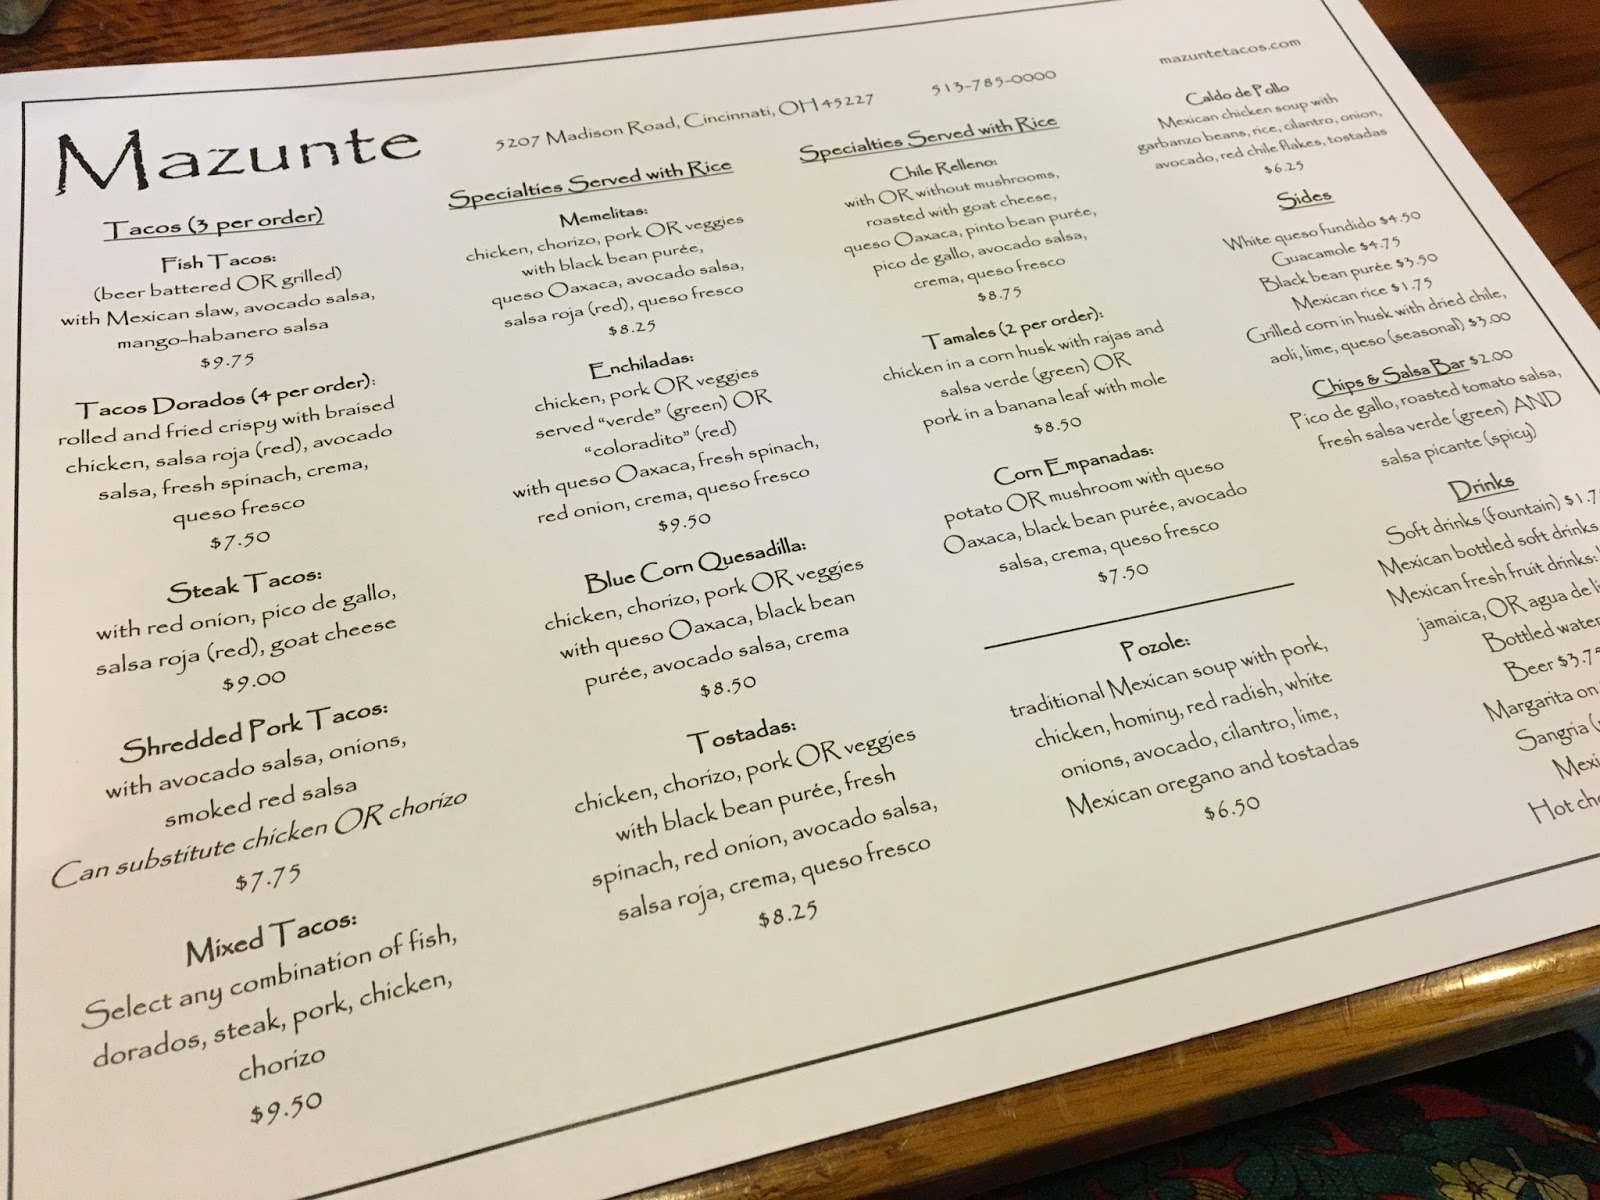 Mazunte
5207 Madison Road, Cincinnati, OH 45227
513-785-0000
mazuntetacos.com
Tacos (3 per order)
Fish Tacos:
(beer battered OR grilled)
with Mexican slaw, avocado salsa,
mango-habanero salsa
$9.75
Tacos Dorados (4 per order):
rolled and fried crispy with braised
chicken, salsa roja (red), avocado
salsa, fresh spinach, crema,
queso fresco
$7.50
Steak Tacos:
with red onion, pico de gallo,
salsa roja (red), goat cheese
$9.00
Shredded Pork Tacos:
with avocado salsa, onions,
smoked red salsa
Can substitute chicken OR chorizo
$7.75
Mixed Tacos:
Select any combination of fish,
dorados, steak, pork, chicken,
chorizo
$9.50
Specialties Served with Rice
Memelitas:
chicken, chorizo, pork OR veggies
with black bean purée,
queso Oaxaca, avocado salsa,
salsa roja (red), queso fresco
$8.25
Enchiladas:
chicken, pork OR veggies
served "verde" (green) OR
"coloradito" (red)
with queso Oaxaca, fresh spinach,
red onion, crema, queso fresco
$9.50
Blue Corn Quesadilla:
chicken, chorizo, pork OR veggies
with queso Oaxaca, black bean
purée, avocado salsa, crema
$8.50
Tostadas:
chicken, chorizo, pork OR veggies
with black bean purée, fresh
spinach, red onion, avocado salsa,
salsa roja, crema, queso fresco
$8.25
Specialties Served with Rice
Chile Relleno:
with OR without mushrooms,
roasted with goat cheese,
queso Oaxaca, pinto bean purée,
pico de gallo, avocado salsa,
crema, queso fresco
$8.75
Tamales (2 per order):
chicken in a corn husk with rajas and
salsa verde (green) OR
pork in a banana leaf with mole
$8.50
Corn Empanadas:
potato OR mushroom with queso
Oaxaca, black bean purée, avocado
salsa, crema, queso fresco
$7.50
Pozole:
traditional Mexican soup with pork,
chicken, hominy, red radish, white
onions, avocado, cilantro, lime,
Mexican oregano and tostadas
$6.50
Caldo de Pollo
Mexican chicken soup with
garbanzo beans, rice, cilantro, onion,
avocado, red chile flakes, tostadas
$6.25
Sides
White queso fundido $4.50
Guacamole $4.75
Black bean purée $3.50
Mexican rice $1.75
Grilled corn in husk with dried chile,
aoli, lime, queso (seasonal) $3.00
Chips & Salsa Bar $2.00
Pico de gallo, roasted tomato salsa,
fresh salsa verde (green) AND
salsa picante (spicy)
Drinks
Soft drinks (fountain)
Mexican bottled soft drinks
Mexican fresh fruit drinks:
jamaica, OR agua de
Bottled water
Beer $3.75
Margarita on
Sangria
Hot